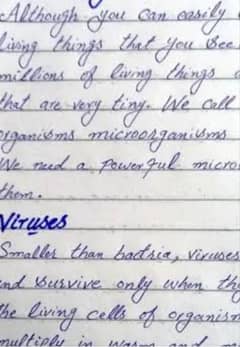 Although you can easily
living things that you see
millions of living things
that are very tiny. We call
organisms microorganisms
We need a powerful micro
them.
Viruses
Smaller than bactria, viruses
and survive only when they
the living cells of organism
multiply in warm and